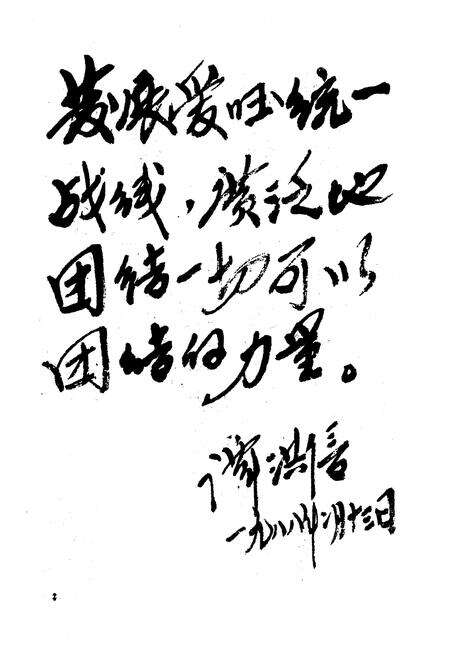 發展爱国统一
战线，廣泛地
团结一切可以
团结的力量。
一九八八年二月十三日